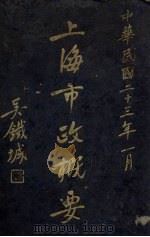 中華民國二十三年一月
上海市政概要
吳鐵城